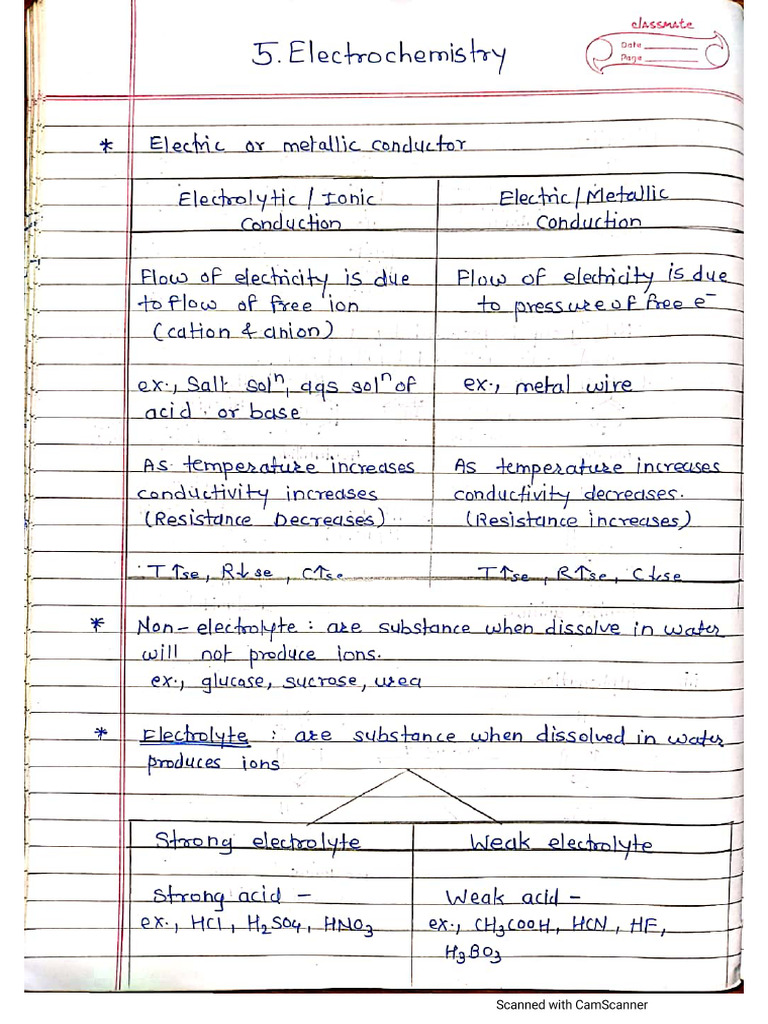 classmate
Date
Page
5. Electrochemistry
* Electric or metallic conductor
Electrolytic / Ionic Conduction
Electric / Metallic Conduction
Flow of electricity is due
to flow of free ion
(cation & anion)
Flow of electricity is due
to pressure of free e⁻
ex., Salt solⁿ, aqs solⁿ of
acid or base
ex., metal wire
As temperature increases
conductivity increases
(Resistance Decreases)
As temperature increases
conductivity decreases.
(Resistance increases)
T↑se, R↓se, C↑se
T↑se, R↑se, C↓se
* Non-electrolyte : are substance when dissolve in water
will not produce ions.
ex., glucose, sucrose, urea
* Electrolyte : are substance when dissolved in water
produces ions
Strong electrolyte
Weak electrolyte
Strong acid –
ex., HCl, H₂SO₄, HNO₃
Weak acid –
ex., CH₃COOH, HCN, HF,
H₃BO₃
Scanned with CamScanner